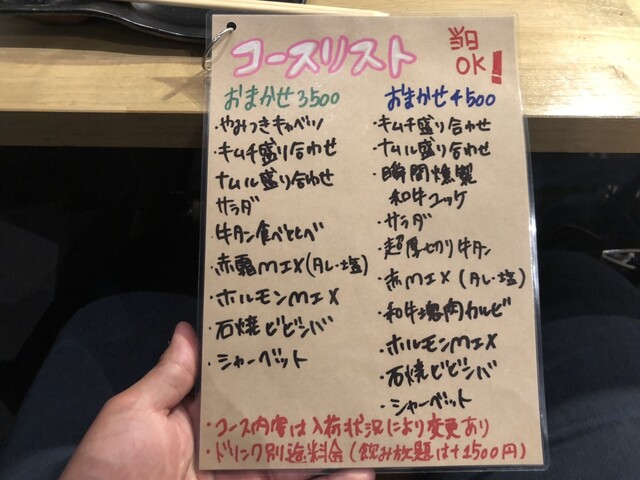 コースリスト
当日
OK!
おまかせ3500
・やみつきキャベツ
・キムチ盛り合わせ
・ナムル盛り合わせ
・サラダ
・牛タン食べくらべ
・赤霜MIX(タレ・塩)
・ホルモンMIX
・石焼ビビンバ
・シャーベット
おまかせ4500
・キムチ盛り合わせ
・ナムル盛り合わせ
・瞬間燻製
和牛ユッケ
・サラダ
・超厚切り牛タン
・赤MIX(タレ・塩)
・和牛塊肉カルビ
・ホルモンMIX
・石焼ビビンバ
・シャーベット
・コース内容は入荷状況により変更あり
・ドリンク別途料金(飲み放題は+1500円)